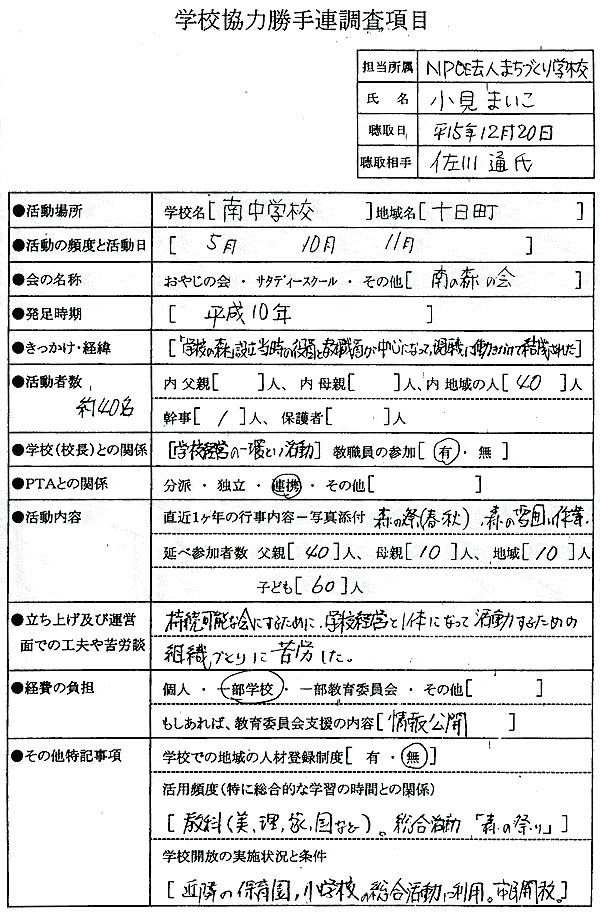 学校協力勝手連調査項目
担当所属 NPO法人まちづくり学校
氏 名 小見まいこ
聴取日 平15年12月20日
聴取相手 佐川 通氏
●活動場所 学校名[南中学校 ]地域名[十日町 ]
●活動の頻度と活動日 [ 5月 10月 11月 ]
●会の名称 おやじの会 ・ サタディースクール ・ その他[ 南の森の会 ]
●発足時期 [ 平成10年 ]
●きっかけ・経緯 [「学校の森」設立当時の役員と教職員が中心になって、地域に働きかけて結成された]
●活動者数 内 父親[ ]人、 内 母親[ ]人、内 地域の人[ 40 ]人
約40名 幹事[ 1 ]人、 保護者[ ]人
●学校(校長)との関係 [学校経営の一環という活動] 教職員の参加[ 有 ・ 無 ]
●PTAとの関係 分派 ・ 独立 ・ 連携 ・ その他[ ]
●活動内容 直近1ヶ年の行事内容−写真添付 森の祭(春・秋)、森の雪囲い作業
延べ参加者数 父親[ 40 ]人、 母親[ 10 ]人、 地域[ 10 ]人
子ども[ 60 ]人
●立ち上げ及び運営 持続可能な会にするために、学校経営と1体になって活動するための
面での工夫や苦労談 組織づくりに苦労した。
●経費の負担 個人 ・ 一部学校 ・ 一部教育委員会 ・ その他[ ]
もしあれば、教育委員会支援の内容[ 情報公開 ]
●その他特記事項 学校での地域の人材登録制度[ 有 ・ 無 ]
活用頻度(特に総合的な学習の時間との関係)
[ 教科(美、理、家、国など)。総合活動「森の祭り」]
学校開放の実施状況と条件
[ 近隣の保育園、小学校の総合活動に利用。市民開放。]